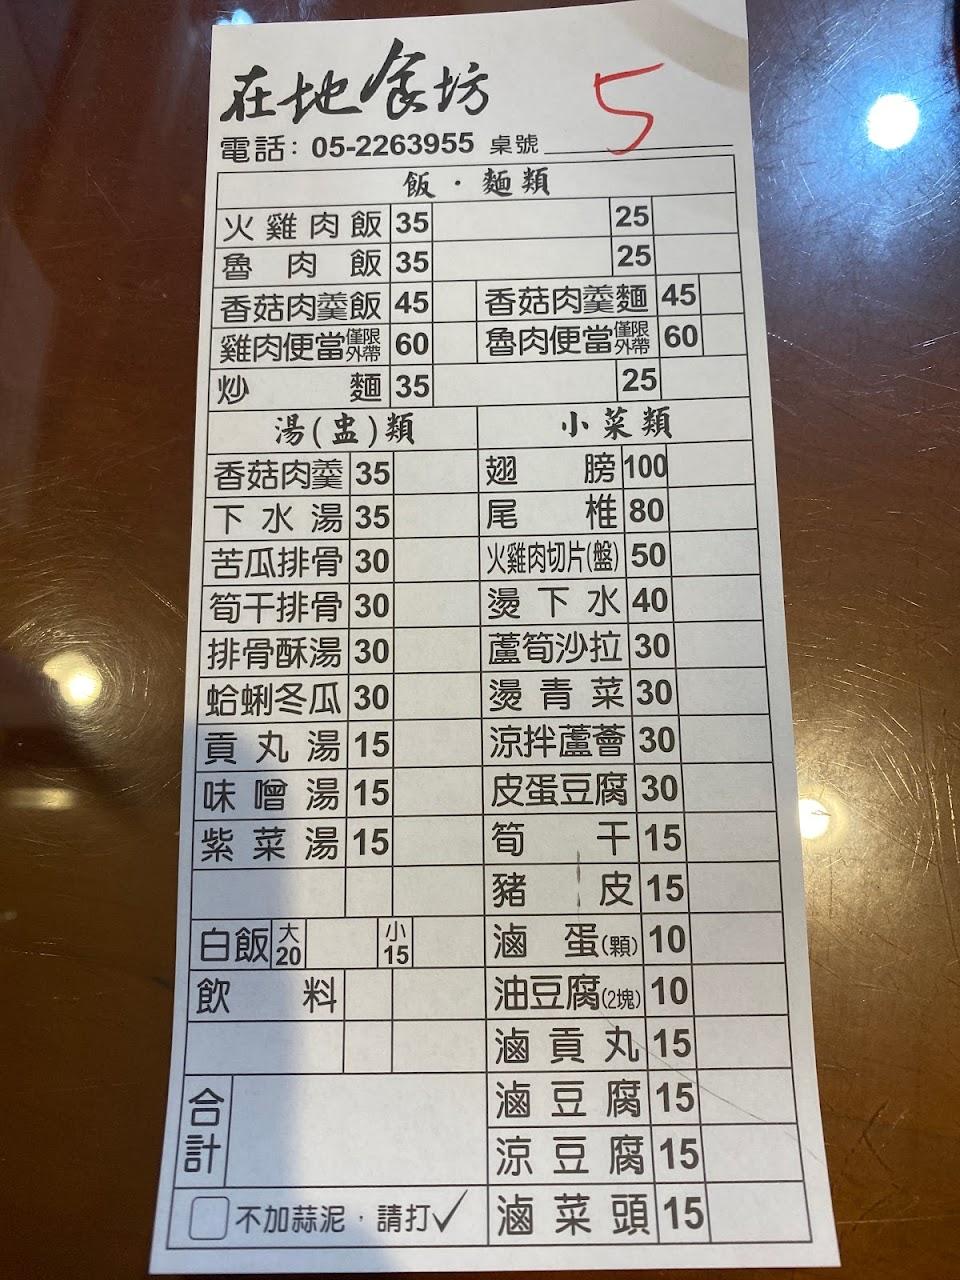 在地食坊
5
電話：05-2263955 桌號
飯．麵類
火雞肉飯 35 25
魯肉飯 35 25
香菇肉羹飯 45 香菇肉羹麵 45
雞肉便當僅限外帶 60 魯肉便當僅限外帶 60
炒麵 35 25
湯(盅)類 小菜類
香菇肉羹 35 翅膀 100
下水湯 35 尾椎 80
苦瓜排骨 30 火雞肉切片(盤) 50
筍干排骨 30 燙下水 40
排骨酥湯 30 蘆筍沙拉 30
蛤蜊冬瓜 30 燙青菜 30
貢丸湯 15 涼拌蘆薈 30
味噌湯 15 皮蛋豆腐 30
紫菜湯 15 筍干 15
豬皮 15
白飯 大20 小15 滷蛋(顆) 10
飲料 油豆腐(2塊) 10
滷貢丸 15
合計 滷豆腐 15
涼豆腐 15
不加蒜泥，請打✓ 滷菜頭 15